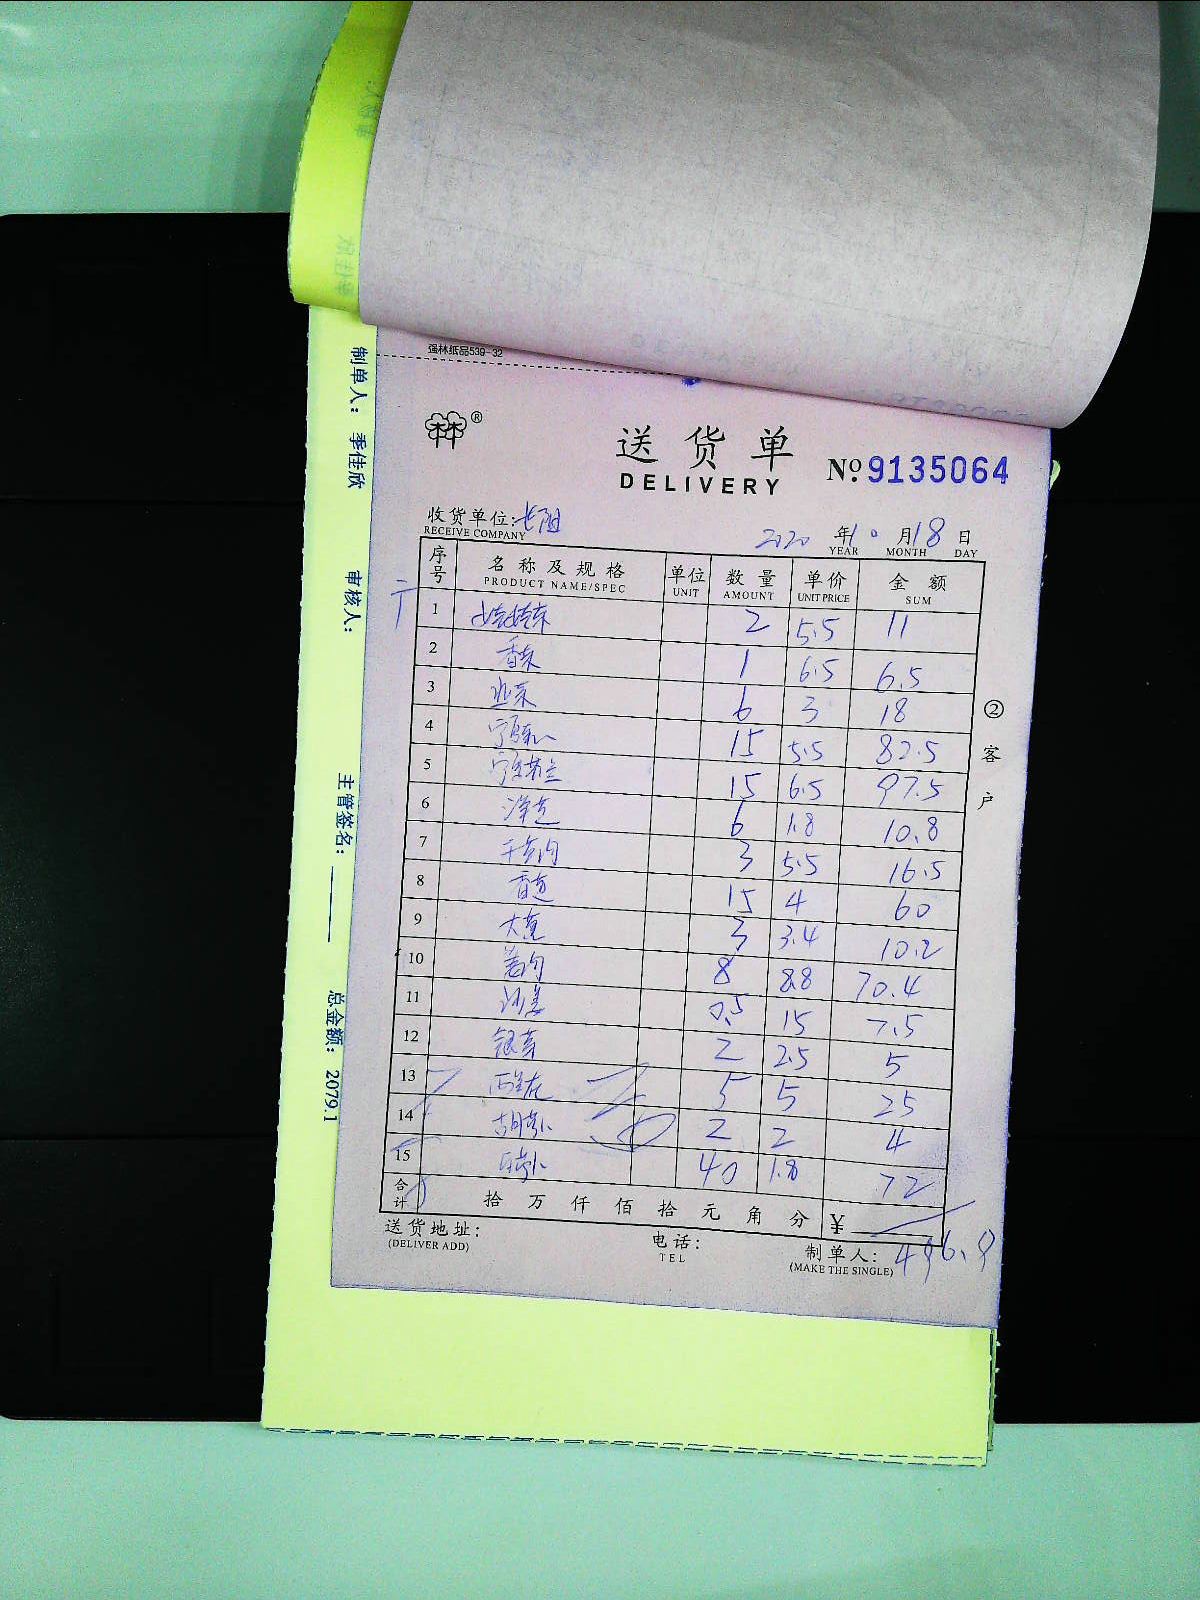 强林纸品539-32
林®
送货单
DELIVERY
№ 9135064
收货单位:
RECEIVE COMPANY
2020 年 10 月 18 日
YEAR MONTH DAY
序号 名称及规格 单位 数量 单价 金额
PRODUCT NAME/SPEC UNIT AMOUNT UNIT PRICE SUM
1 娃娃菜 2 5.5 11
2 香菜 1 6.5 6.5
3 韭菜 6 3 18
4 15 5.5 82.5
5 15 6.5 97.5
6 6 1.8 10.8
7 3 5.5 16.5
8 香芝 15 4 60
9 大葱 3 3.4 10.2
10 姜肉 8 8.8 70.4
11 沙姜 0.5 15 7.5
12 银芽 2 2.5 5
13 西兰花 5 5 25
14 胡萝卜 2 2 4
15 白萝卜 40 1.8 72
合计 拾 万 仟 佰 拾 元 角 分 ¥
496.9
送货地址: 电话: 制单人:
(DELIVER ADD) TEL (MAKE THE SINGLE)
②客户
制单人: 季佳欣 审核人: 主管签名: 总金额: 2079.1